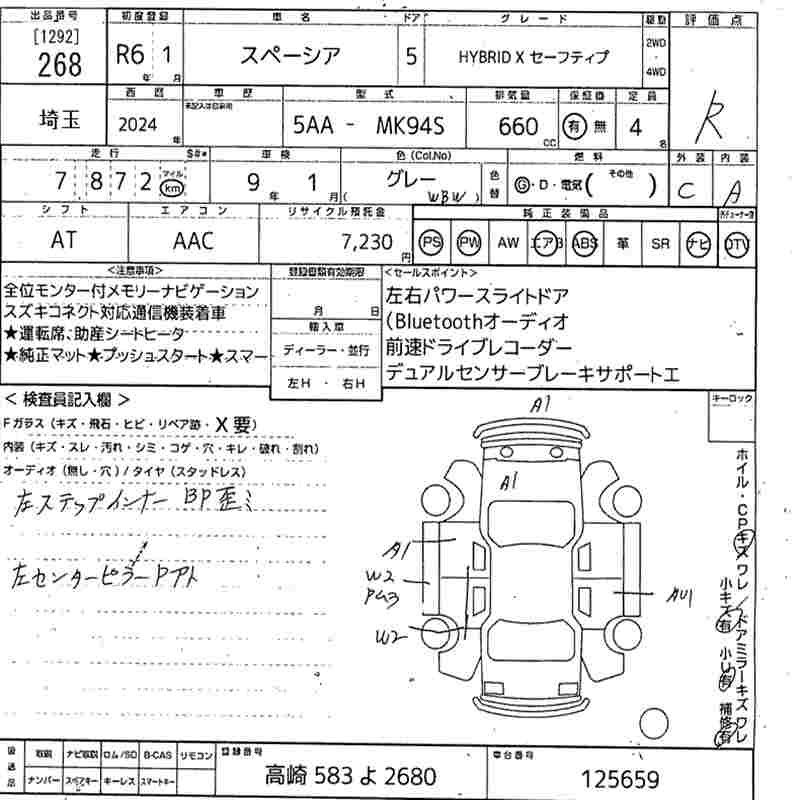 出品番号 初度登録 車名 ドア グレード 駆動 評価点
[1292]
268 R6 1 スペーシア 5 HYBRID X セーフティプ 2WD 4WD
年 月
西暦 車歴 型式 排気量 保証書 定員
埼玉 2024 年 5AA - MK94S 660 CC 有 無 4 名 R
走行 S#* 車検 色(Col.No) 燃料 外装 内装
7 872 マイル km 9 年 1 月 グレー (WBW) 色替 G・D・電気( その他 ) C A
シフト エアコン リサイクル預託金 純正装備品
AT AAC 7,230 円 PS PW AW エアB ABS 革 SR ナビ DTV
<注意事項> 登録書類有効期限 <セールスポイント>
全位モンター付メモリーナビゲーション
スズキコネクト対応通信機装着車
★運転席、助産シートヒータ
★純正マット★プッシュスタート★スマー
月 日
輸入車
ディーラー・並行
左H ・ 右H
左右パワースライトドア
(Bluetoothオーディオ
前速ドライブレコーダー
デュアルセンサーブレーキサポートエ
< 検査員記入欄 > キーロック
Fガラス(キズ・飛石・ヒビ・リペア跡・X要)
内装(キズ・スレ・汚れ・シミ・コゲ・穴・キレ・破れ・割れ)
オーディオ(無し・穴)/タイヤ(スタッドレス)
左ステップインナー BP歪ミ
左センターピラーPアト
A1
A1
A1
W2
PG3
W2
AU1
ホイル・CPキズワレ/ドアミラーキズワレ
小キズ有 小U有 補修有
後送品 取説 ナビ取説 ロム/SD B-CAS リモコン 登録番号 車台番号
ナンバー スペアキー キーレス スマートキー 高崎 583 よ 2680 125659